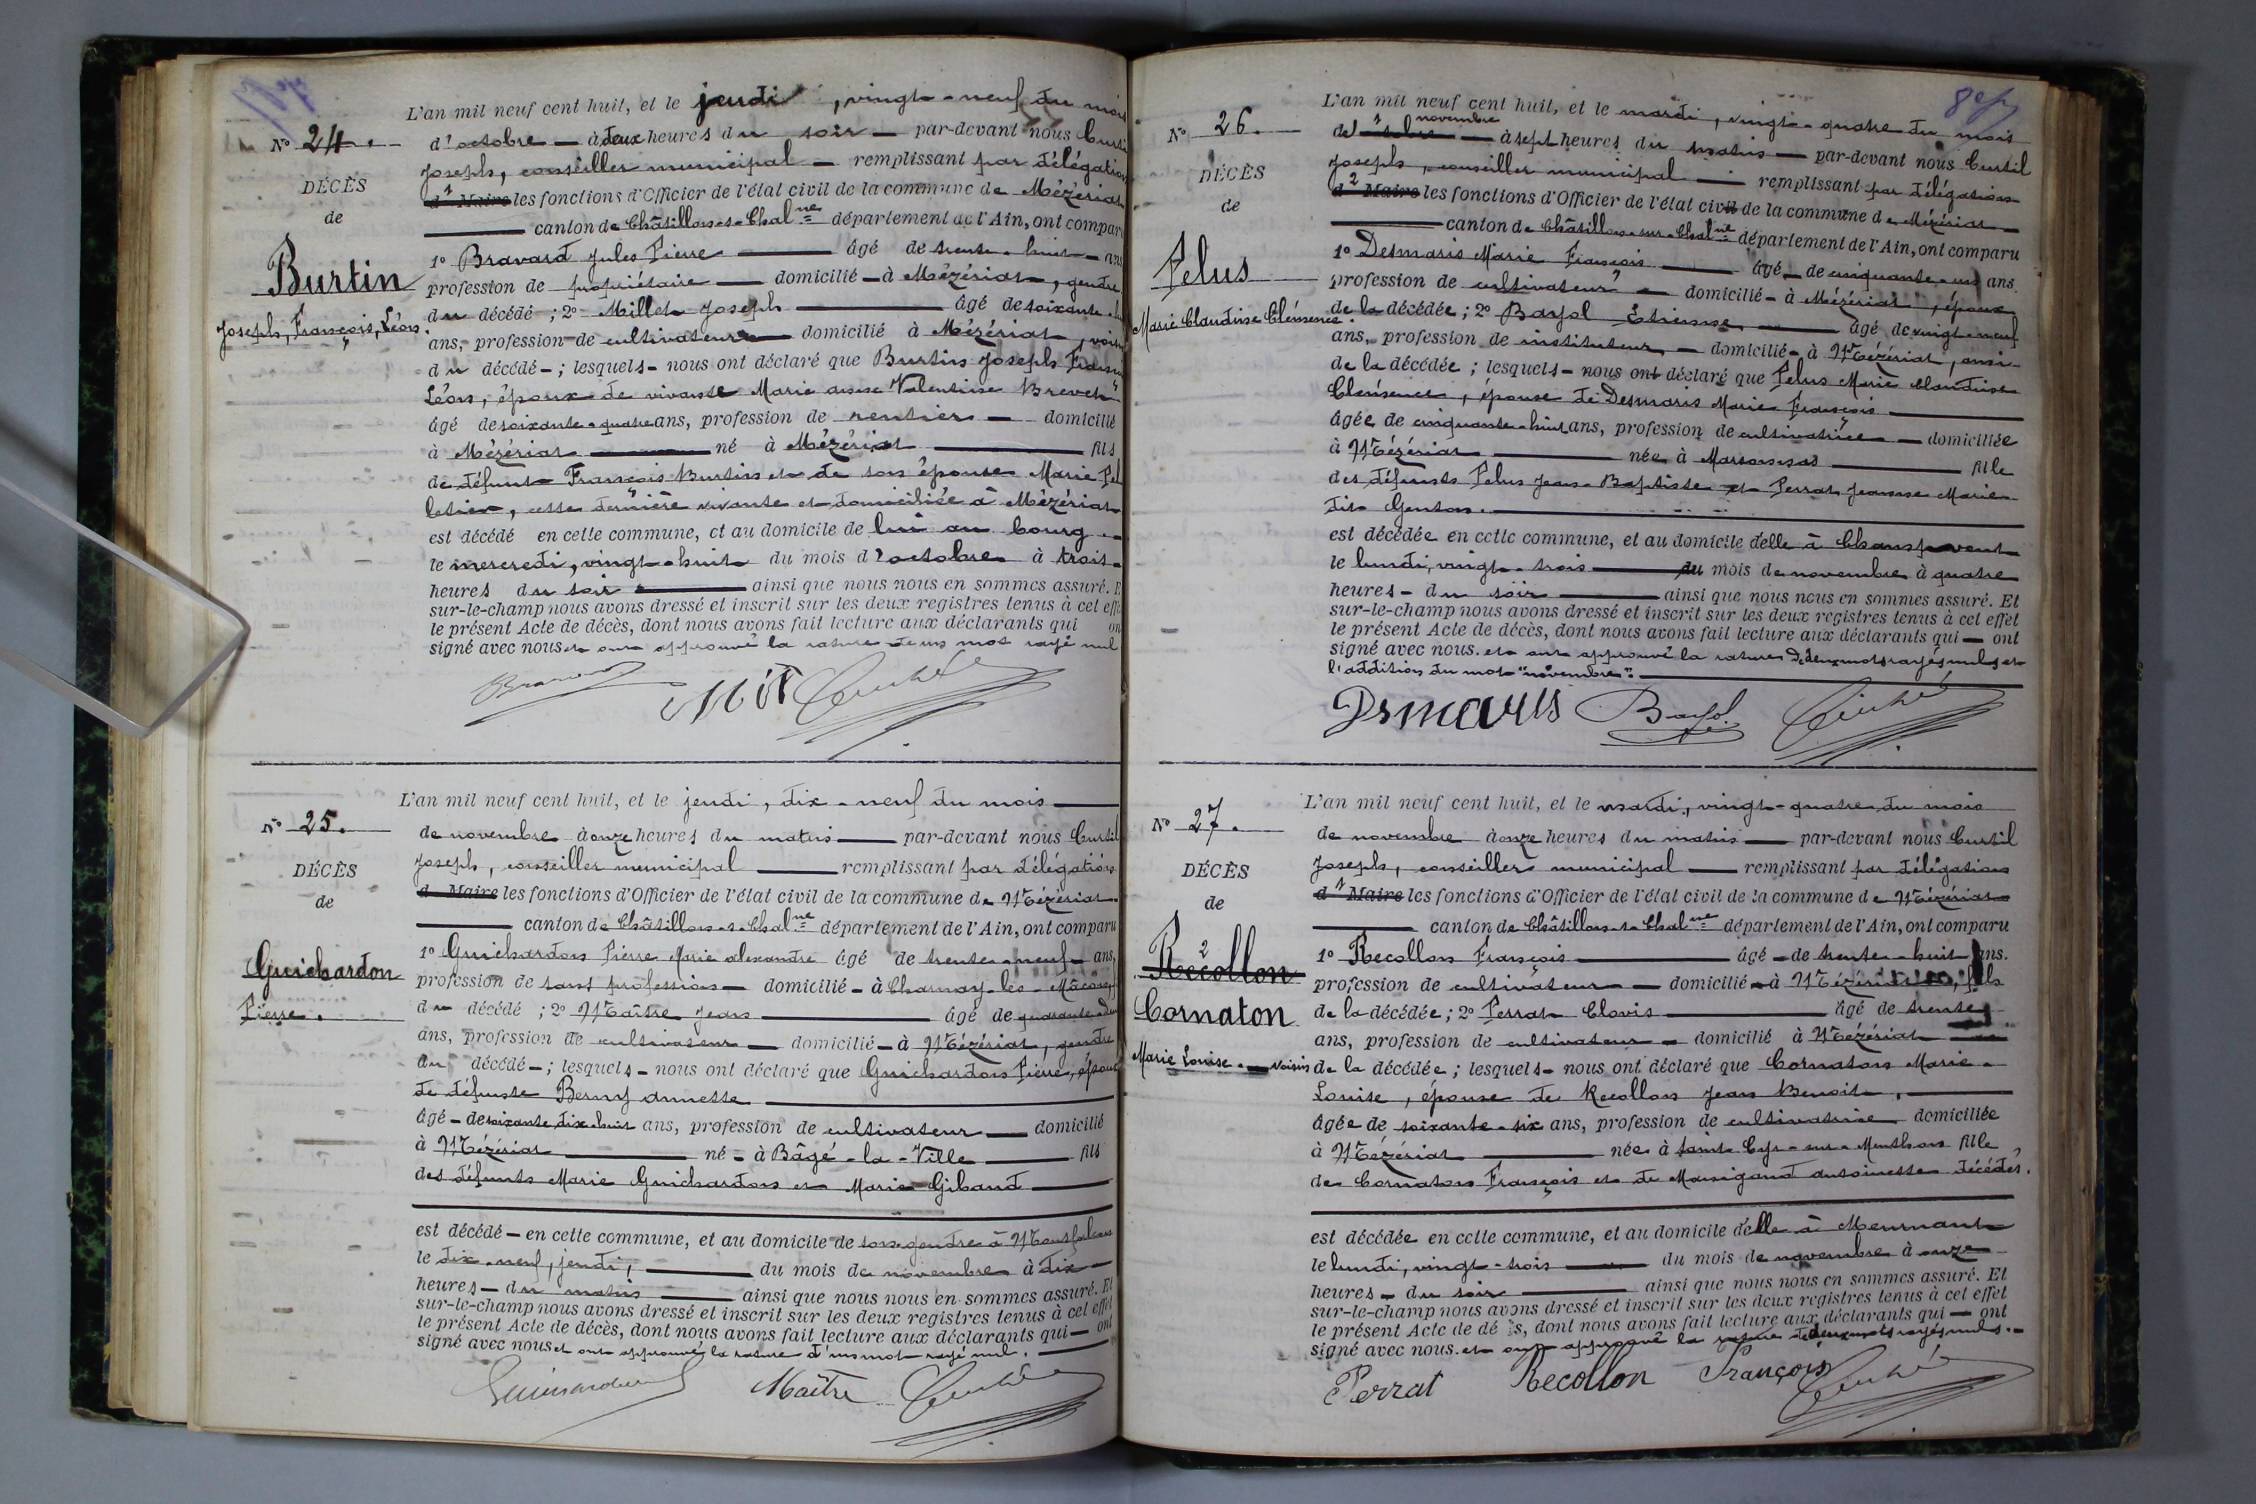 N° 24.
DÉCÈS
de
Burtin
Joseph, François, Léon.
L'an mil neuf cent huit, et le jeudi, vingt-neuf du mois
d'octobre — à deux heures du soir — par-devant nous Curtil
Joseph, conseiller municipal — remplissant par délégation
d' Maire les fonctions d'Officier de l'état civil de la commune de Mézériat
canton de Châtillon-s-Chal.ne département de l'Ain, ont comparu
1° Bravard Jules Pierre — âgé de trente-huit ans
profession de propriétaire — domicilié — à Mézériat, gendre
du décédé ; 2° Millet Joseph — âgé de soixante
ans, profession de cultivateur — domicilié à Mézériat, voisin
du décédé — ; lesquels — nous ont déclaré que Burtin Joseph François
Léon, époux de vivante Marie anne Valentine Brevet
âgé de soixante-quatre ans, profession de rentier — domicilié
à Mézériat — né à Mézériat — fils
de défunt François Burtin et de son épouse Marie Pel
letier, cette dernière vivante et domiciliée à Mézériat
est décédé en cette commune, et au domicile de lui au bourg
le mercredi, vingt-huit du mois d'octobre à trois
heures du soir — ainsi que nous nous en sommes assuré. Et
sur-le-champ nous avons dressé et inscrit sur les deux registres tenus à cet effet
le présent Acte de décès, dont nous avons fait lecture aux déclarants qui ont
signé avec nous et ont approuvé la rature de un mot rayé nul
N° 25.
DÉCÈS
de
Guichardon
Pierre.
L'an mil neuf cent huit, et le jeudi, dix-neuf du mois —
de novembre à onze heures du matin — par-devant nous Curtil
Joseph, conseiller municipal — remplissant par délégation
d Maire les fonctions d'Officier de l'état civil de la commune de Mézériat
canton de Châtillon-s-Chal.ne département de l'Ain, ont comparu
1° Guichardon Pierre Marie alexandre âgé de trente-neuf ans,
profession de sans profession — domicilié — à Charnay-les-Mâcon,
du décédé ; 2° Maître Jean — âgé de quarante
ans, profession de cultivateur — domicilié — à Mézériat, gendre
du décédé — ; lesquels — nous ont déclaré que Guichardon Pierre, époux
de défunte Berny annette —
âgé — de soixante dix-huit ans, profession de cultivateur — domicilié
à Mézériat — né — à Bâgé-la-Ville — fils
des défunts Marie Guichardon et Marie Giband —
est décédé — en cette commune, et au domicile de son gendre à Montfalcon
le dix-neuf, jeudi, — du mois de novembre à dix —
heures — du matin — ainsi que nous nous en sommes assuré. Et
sur-le-champ nous avons dressé et inscrit sur les deux registres tenus à cet effet
le présent Acte de décès, dont nous avons fait lecture aux déclarants qui — ont
signé avec nous et ont approuvé la rature d'un mot rayé nul.
Maître
8e f
N° 26.
DÉCÈS
de
Pelus
Marie Claudine Clémence
L'an mil neuf cent huit, et le mardi, vingt-quatre du mois
novembre
de — à sept heures du matin — par-devant nous Curtil
Joseph, conseiller municipal — remplissant par délégation
d² Maire les fonctions d'Officier de l'état civil de la commune de Mézériat
canton de Châtillon-sur-Chal.ne département de l'Ain, ont comparu
1° Desmaris Marie François — âgé — de cinquante-un ans.
profession de cultivateur — domicilié — à Mézériat, époux
de la décédée ; 2° Bayol Etienne — âgé de vingt-neuf
ans, profession de instituteur — domicilié — à Mézériat, ami
de la décédée ; lesquels — nous ont déclaré que Pelus Marie Claudine
Clémence, épouse de Desmaris Marie François —
âgée de cinquante-huit ans, profession de cultivatrice — domiciliée
à Mézériat — née à Marsonnas — fille
des défunts Pelus Jean-Baptiste et Perrat Jeanne Marie
dit Genton. —
est décédée en cette commune, et au domicile d'elle à Champvent
le lundi, vingt-trois — du mois de novembre à quatre
heures — du soir — ainsi que nous nous en sommes assuré. Et
sur-le-champ nous avons dressé et inscrit sur les deux registres tenus à cet effet
le présent Acte de décès, dont nous avons fait lecture aux déclarants qui — ont
signé avec nous. et ont approuvé la rature de deux mots rayés nuls et
l'addition du mot "novembre".
Dsmaris Bayol
N° 27.
DÉCÈS
de
Recollon
Cornaton
Marie Louise.
L'an mil neuf cent huit, et le mardi, vingt-quatre du mois
de novembre à onze heures du matin — par-devant nous Curtil
Joseph, conseiller municipal — remplissant par délégation
d' Maire les fonctions d'Officier de l'état civil de la commune de Mézériat
canton de Châtillon-s-Chal.ne département de l'Ain, ont comparu
1° Recollon François — âgé — de trente-huit ans.
profession de cultivateur — domicilié — à Mézériat, fils
de la décédée ; 2° Perrat Clovis — âgé de trente
ans, profession de cultivateur — domicilié à Mézériat
voisin de la décédée ; lesquels — nous ont déclaré que Cornaton Marie
Louise, épouse de Recollon Jean Benoit, —
âgée de soixante-six ans, profession de cultivatrice domiciliée
à Mézériat — née à saint Cyr-sur-Menthon fille
de Cornaton François et de Mainigand antoinette décédés.
est décédée en cette commune, et au domicile d'elle à Meurnant
le lundi, vingt-trois — du mois de novembre à onze
heures — du soir — ainsi que nous nous en sommes assuré. Et
sur-le-champ nous avons dressé et inscrit sur les deux registres tenus à cet effet
le présent Acte de dé s, dont nous avons fait lecture aux déclarants qui — ont
signé avec nous. et ont approuvé la rature de deux mots rayés nuls.
Perrat Recollon François